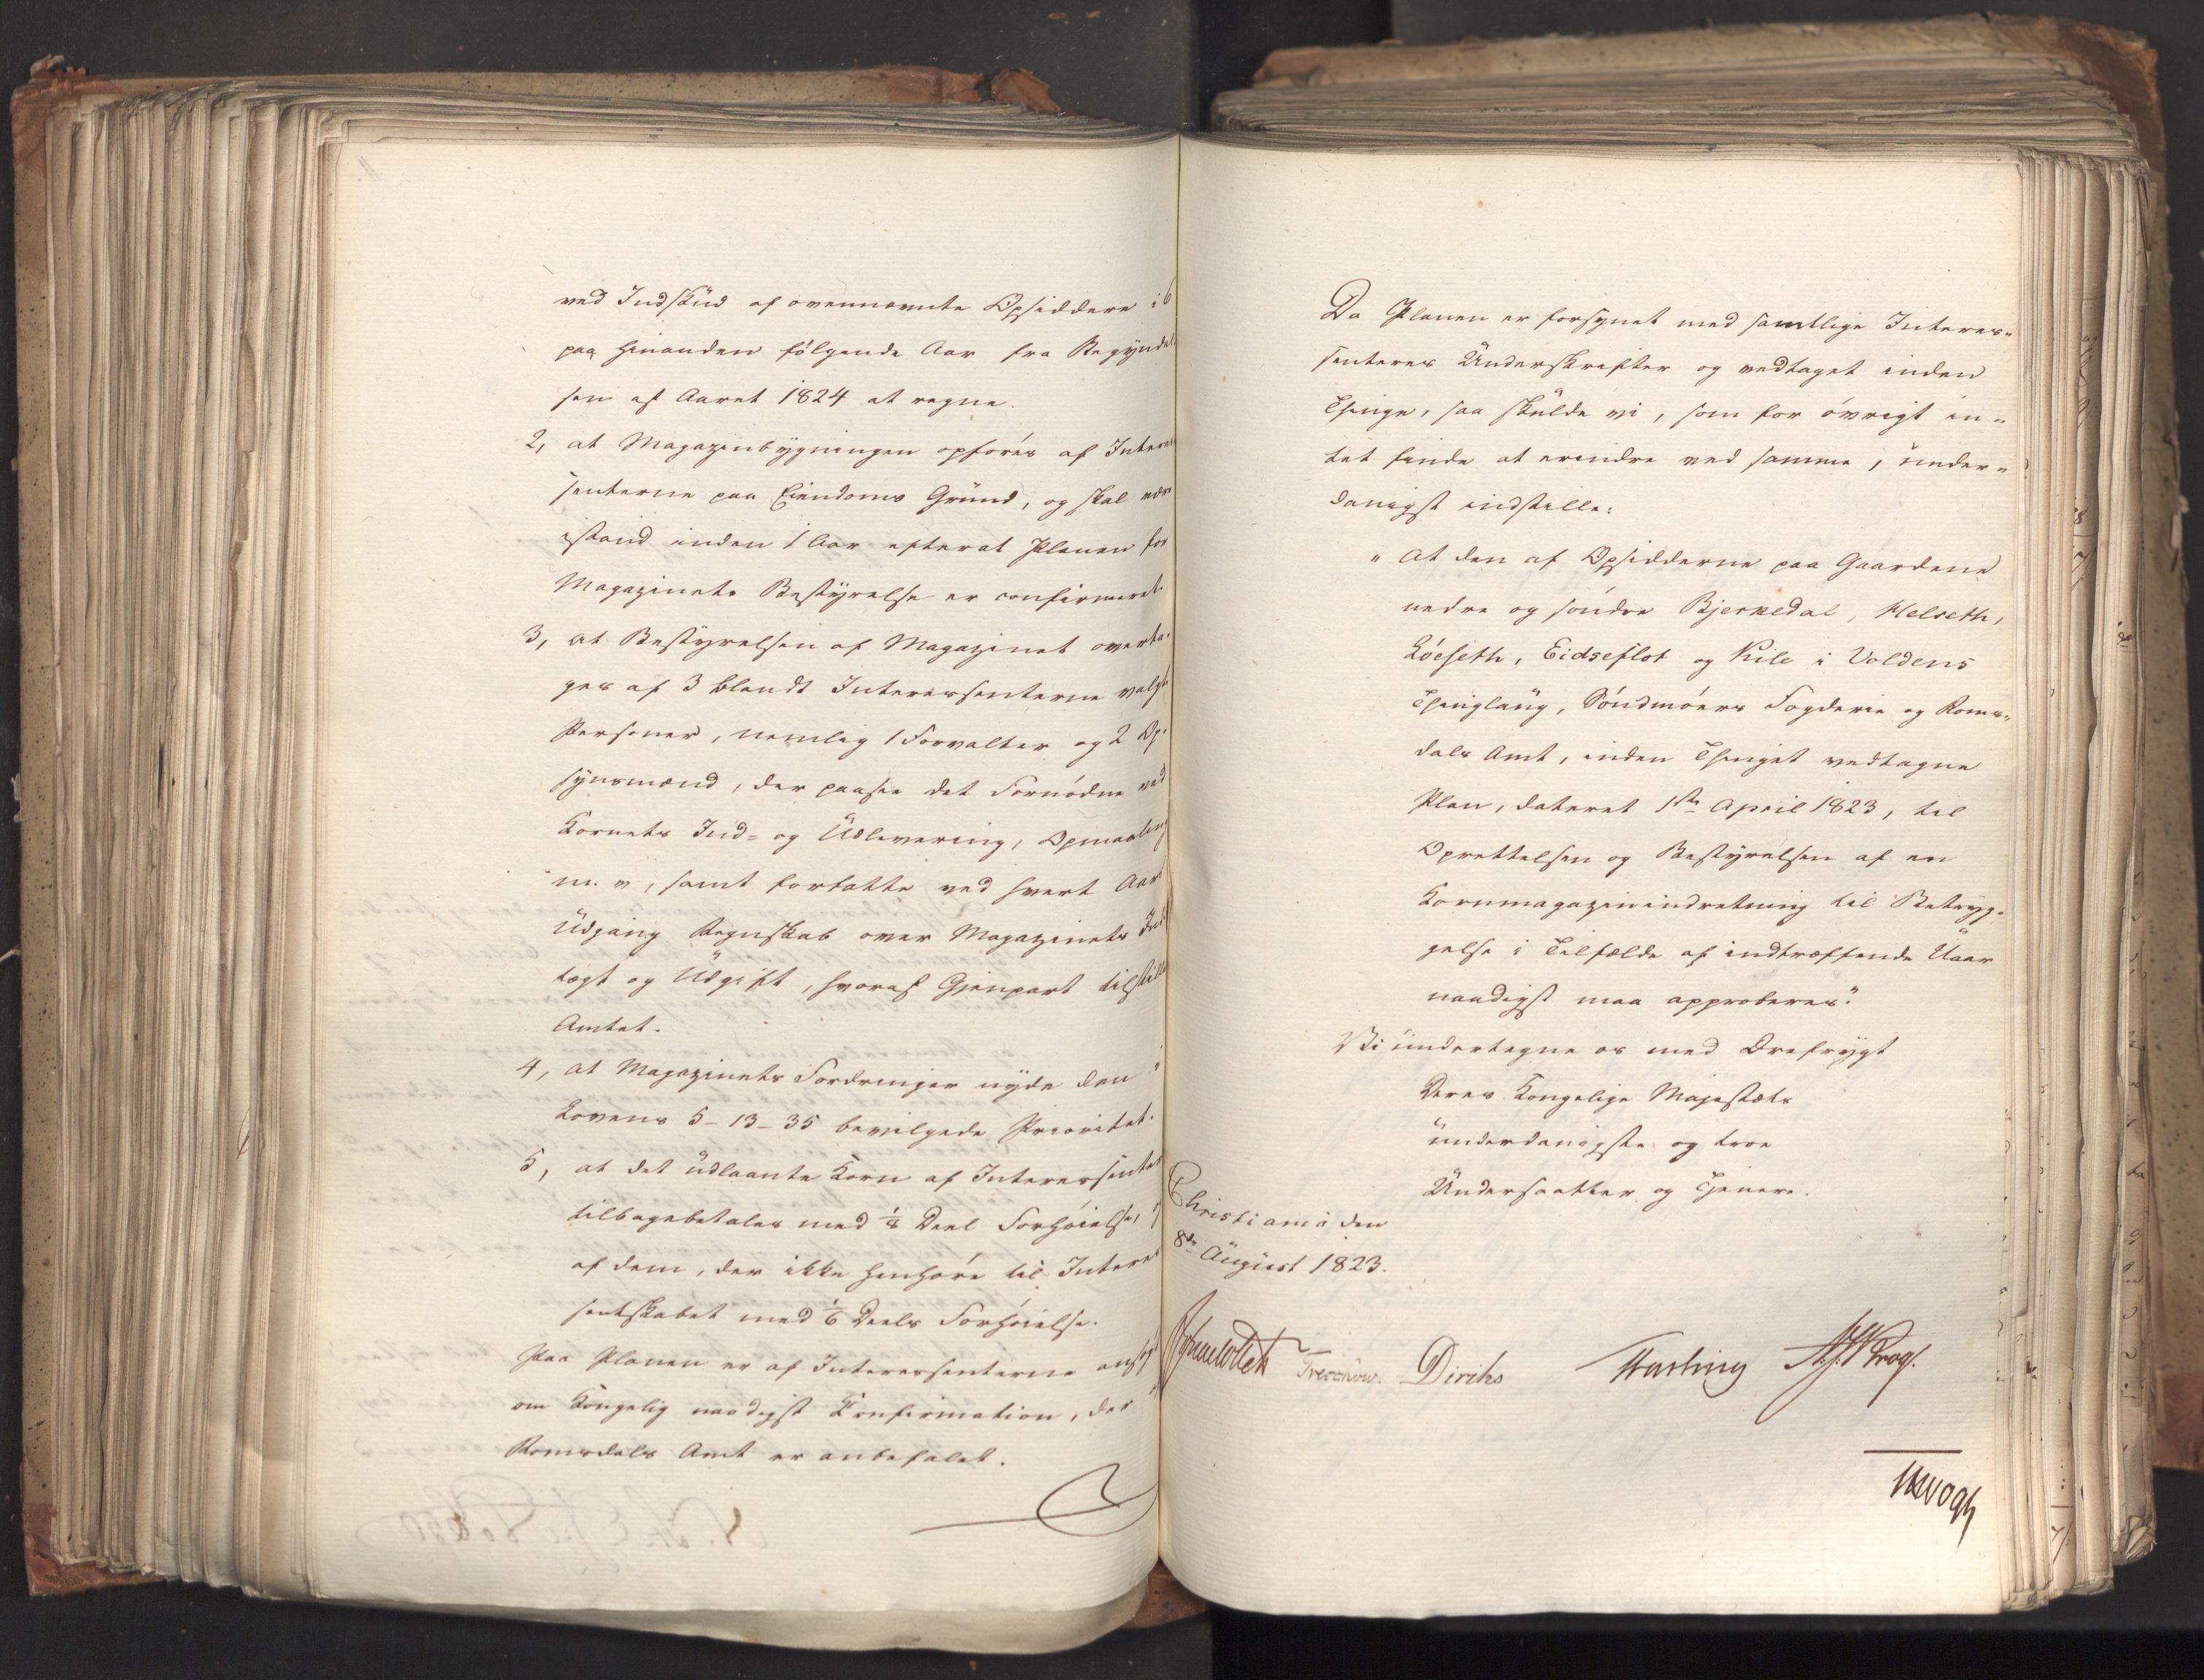 ved Indskud af ovennævnte Opsiddere i 6
paa hinanden følgende Aar fra Begyndel
sen af Aaret 1824 at regne.
2, at Magazinbygningen opføres af Interes
senterne paa Eiendoms Grund, og skal være
istand inden 1 Aar efterat Planen for
Magazinets Bestyrelse er confirmeret.
3, at Bestyrelsen af Magazinet overta-
ges af 3 blandt Interessenterne valgte
Personer, nemlig 1 Forvalter og 2 Op-
synsmænd, der paasee det Fornødne ved
Kornets Ind- og Udlevering, Opmaaling
m. v, samt forfatte ved hvert Aars
Udgang Regnskab over Magazinets Ind
tægt og Udgift, hvoraf Gjenpart tilstilles
Amtet.
4, at Magazinets Fordringer nyde den i
Lovens 5-13-35 bevilgede Prioritet.
5, at det udlaante Korn af Interessenter
tilbagebetales med 1/8 Deel Forhøielse,
af dem, der ikke henhøre til Interes
sentskabet med 1/6 Deels Forhøielse.
Paa Planen er af Interessenterne ansøgt
om Kongelig naadigst Confirmation, der
Romsdals Amt er anbefalet.
Da Planen er forsynet med samtlige Interes-
senteres Underskrifter og vedtaget inden
Thinge, saa skulde vi, som for øvrigt in-
tet finde at erindre ved samme, under-
danigst indstille:
"At den af Opsidderne paa Gaardene
nedre og søndre Bjerkedal, Helseth,
Løeseth, Eidseflot og Kile i Voldens
Thinglaug, Søndmøers Fogderie og Roms-
dals Amt, inden Thinget vedtagne
Plan, dateret 1ste April 1823, til
Oprettelsen og Bestyrelsen af en
Kornmagazinindretning til Betryg-
gelse i Tilfælde af indtræffende Uaar
naadigst maa approberes."
Vi undertegne os med Ærefrygt
Deres Kongelige Majestæts
underdanigste og troe
Undersaatter og Tjenere.
Christiania den
8de August 1823.
Treschow. Diriks Krog.
Vogt